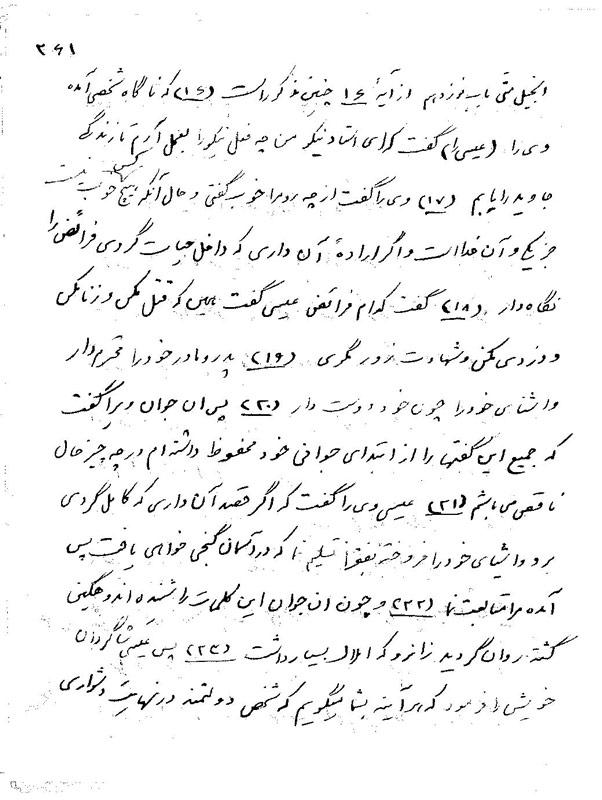 ۳۶۱
انجیل متّی باب نوزدهم از آیهٔ ۱۶ چنین مذکور است (۱۶) که ناگاه شخصی آمده
وی را (عیسی را) گفت که ای استاد نیکو من چه فعل نیکو را بعمل آرم تا زندگی
جاوید را یابم (۱۷) وی را گفت از چه رو مرا خوب گفتی و حال آنکه هیچ کس خوب نیست
جز یکی و آن خدا است و اگر ارادهٔ آن داری که داخل حیات گردی فرائض را
نگاه دار (۱۸) گفت کدام فرائض عیسی گفت همین که قتل مکن و زنا مکن
و دزدی مکن و شهادت زور مگوی (۱۹) پدر و مادر خود را محترم دار
و آشنای خود را چون خود دوست دار (۲۰) پس آن جوان ویرا گفت
که جمیع این گفتها را از ابتدای جوانی خود محفوظ داشته ام در چه چیز حال
ناقص می باشم (۲۱) عیسی وی را گفت که اگر قصد آن داری که کامل گردی
برو و اشیای خود را فروخته بفقرا تسلیم نما که در آسمان گنجی خواهی یافت پس
آمده مرا متابعت نما (۲۲) و چون آن جوان این کلمات را شنید اندوهگین
گشته روان گردید زانرو که املاک بسیار داشت (۲۳) پس عیسی شاگردان
خویش را فرمود که هر آینه بشما میگویم که شخص دولتمند در نهایت دشواری